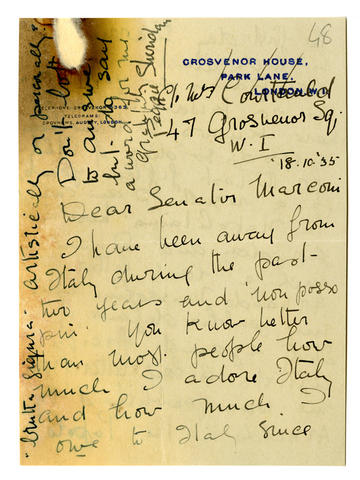 48
GROSVENOR HOUSE,
PARK LANE,
LONDON. W.1.
TELEGRAMS:
GROVHOWS, AUDLEY, LONDON.
47 Grosvenor Sq.
W. I
18.10.35
Dear Senator Marconi
I have been away from
Italy during the past
two years and "non posso
piu". You know better
than most people how
much I adore Italy
and how much I
owe to Italy since
"brutta figura" artistically or personally.
Don't bother
to answer
but do say
a word for me